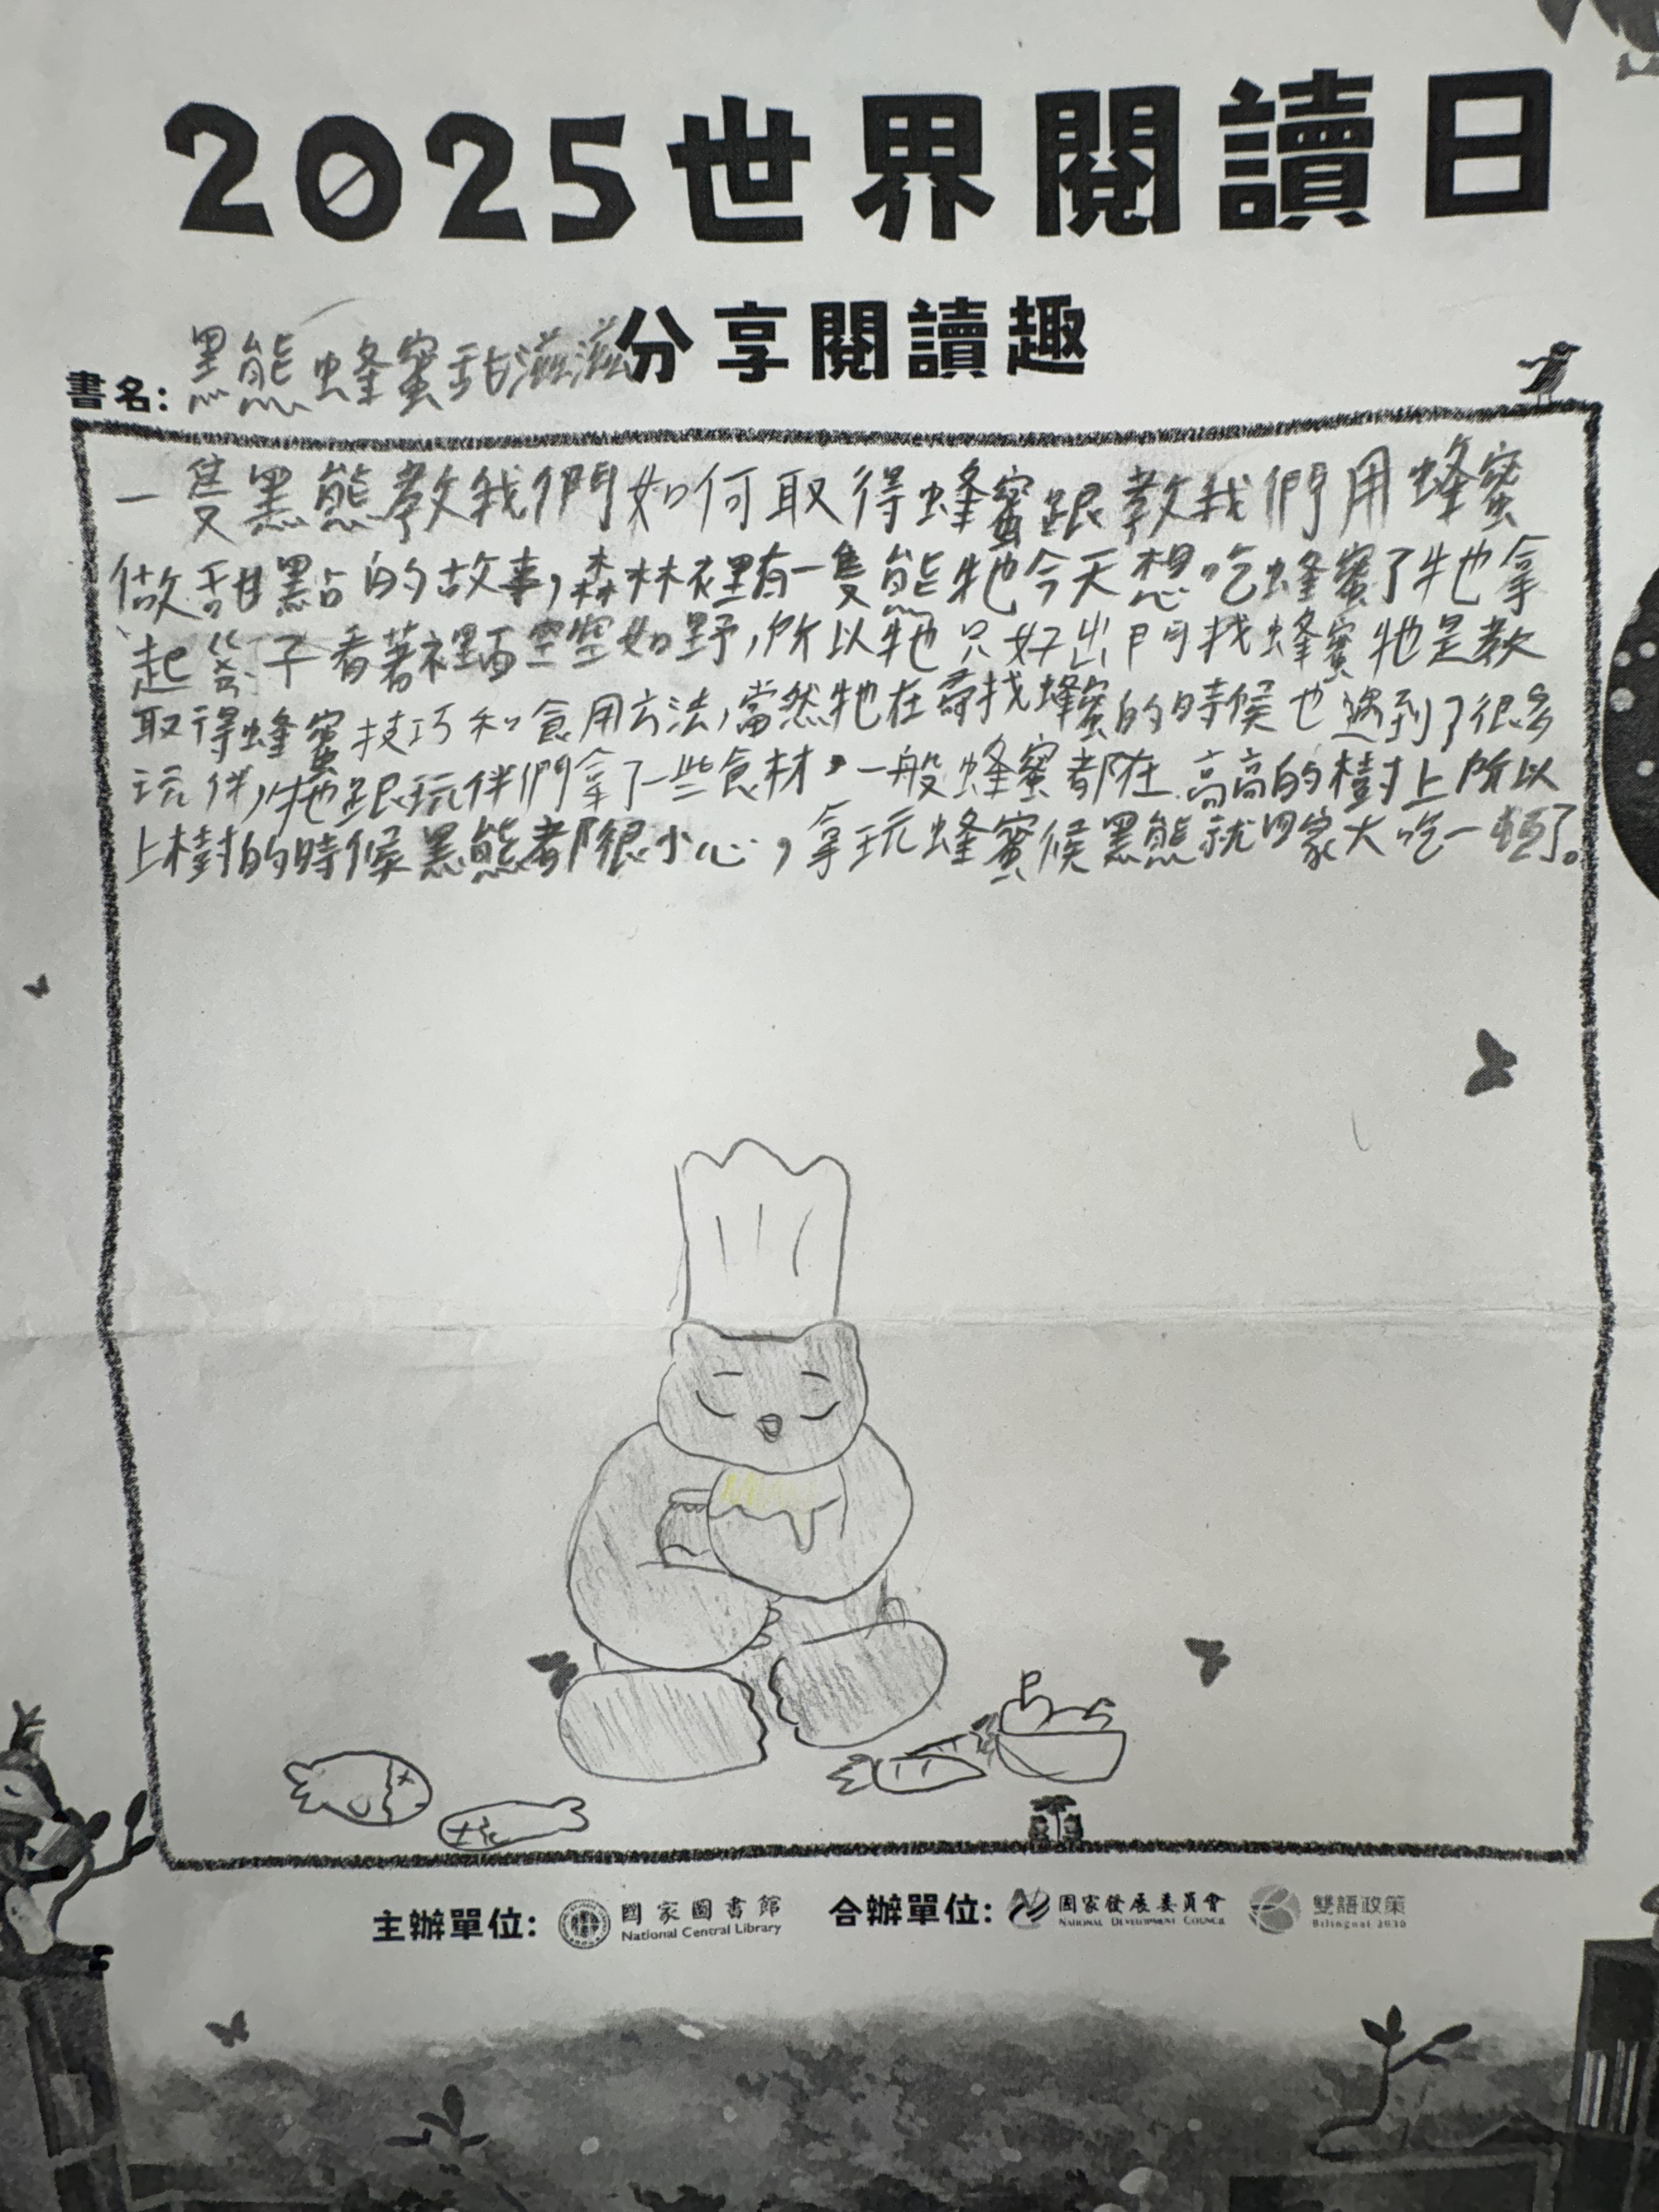 2025世界閱讀日
分享閱讀趣
書名:黑熊蜂蜜甜滋滋
一隻黑熊教我們如何取得蜂蜜跟教我們用蜂蜜
做甜點的故事,森林裡有一隻熊牠今天想吃蜂蜜了牠拿
起 子看著裡面空空如野,所以牠只好出門找蜂蜜牠是教
取得蜂蜜技巧和食用方法,當然牠在尋找蜂蜜的時候也遇到了很多
玩伴,牠跟玩伴們拿了一些食材,一般蜂蜜都在高高的樹上所以
上樹的時候黑熊都很小心,拿玩蜂蜜候黑熊就回家大吃一頓了。
主辦單位: 國家圖書館 National Central Library 合辦單位: 國家發展委員會 National Development Council 雙語政策 Bilingual 2030